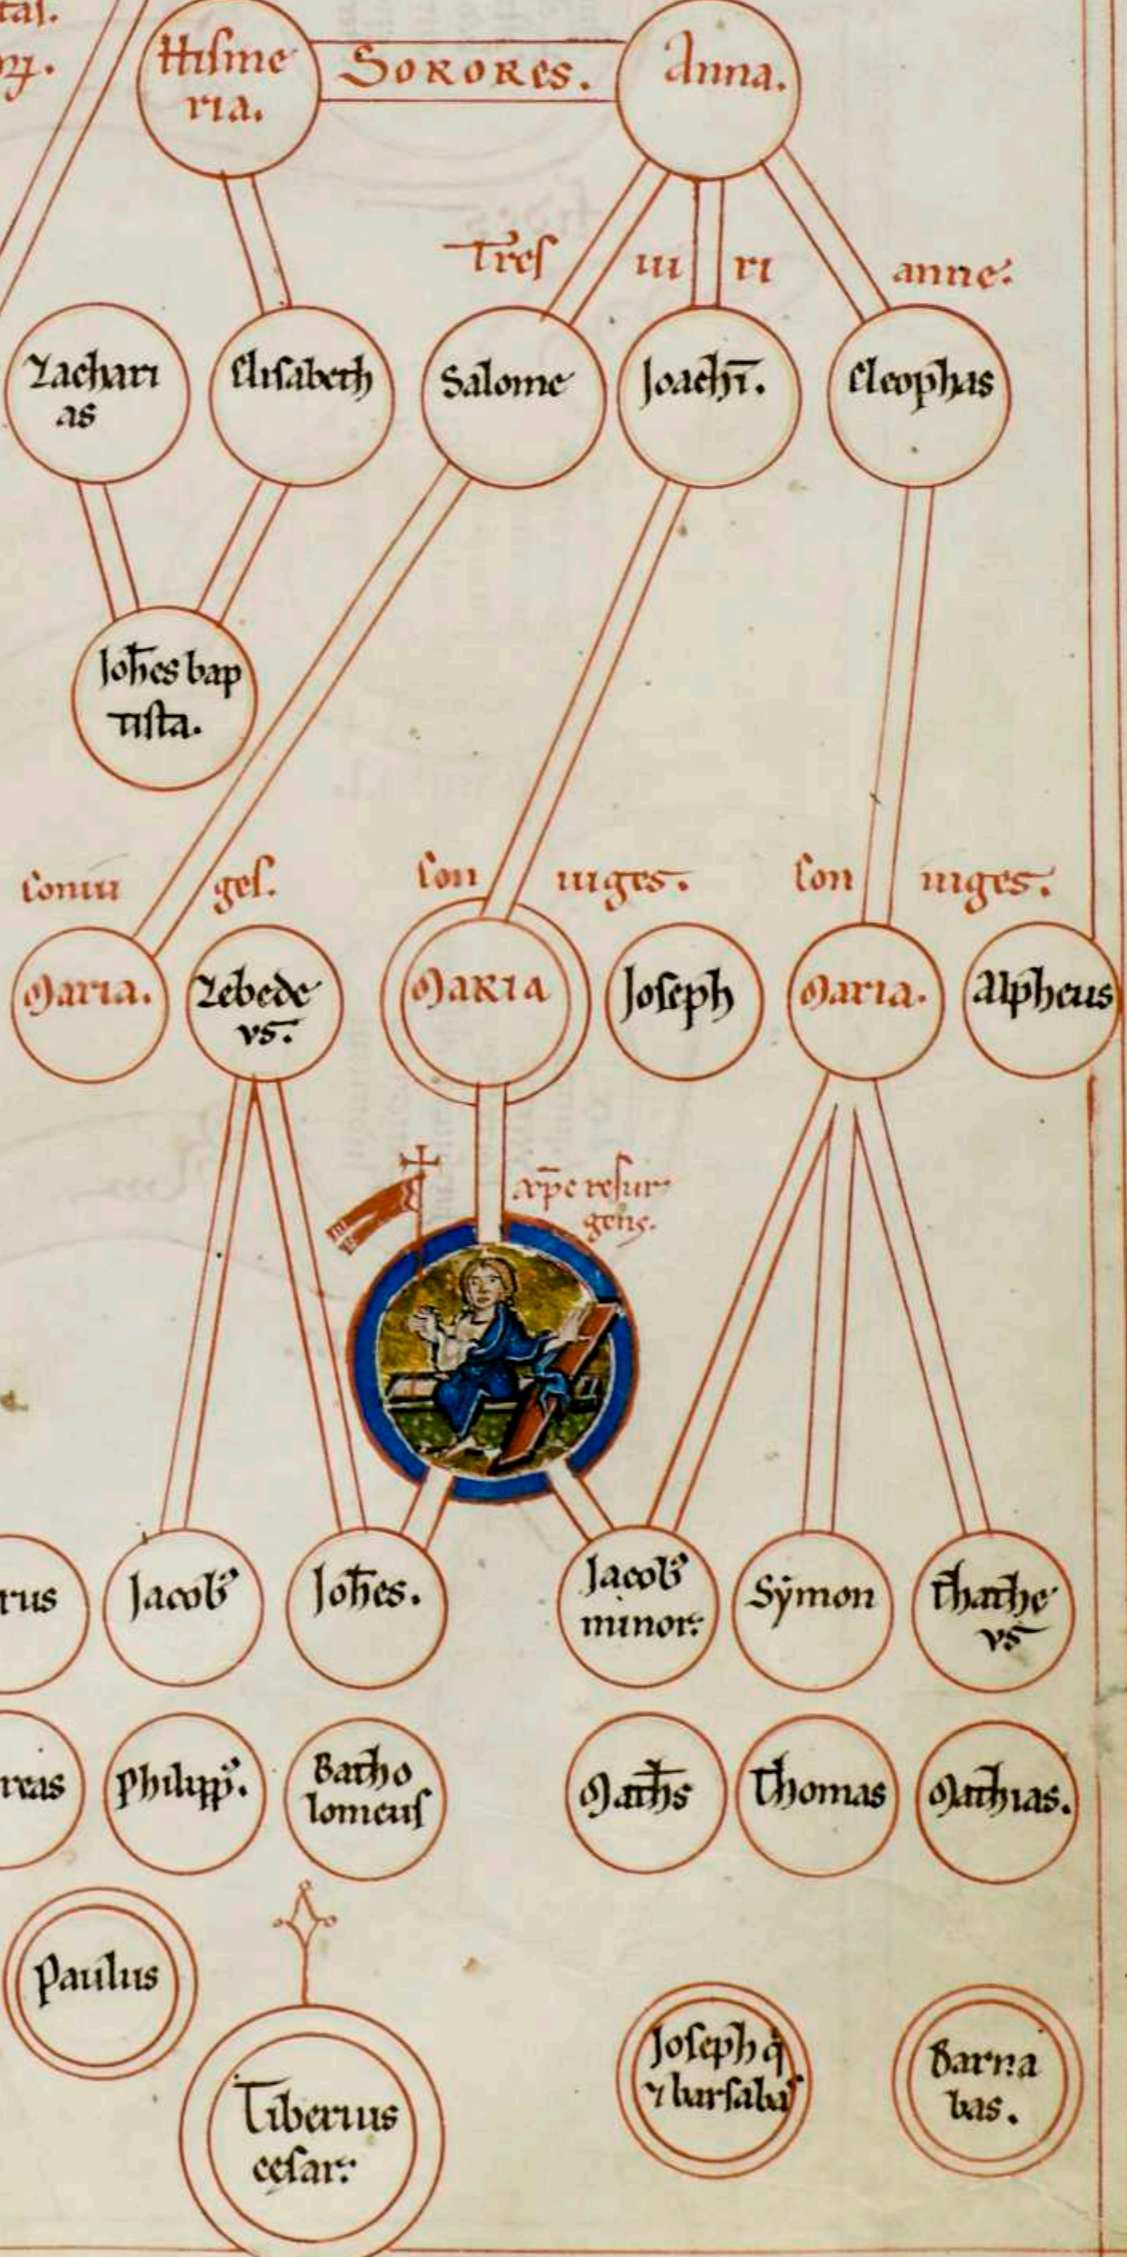 tas.
Hisme
ria.
SORORES.
Anna.
Tres
ui
ri
anne.
Zachari
as
Elisabeth
Salome
Joachī.
Cleophas
Joh̄es bap
tista.
Coniu
ges.
Con
iuges.
Con
iuges.
Maria.
Zebede
vs.
MARIA
Joseph
Maria.
Alpheus
xp̄c resur
gens.
rus
Jacobꝰ
Joh̄es.
Jacobꝰ
minor.
Symon
Thathe
vs
reas
Philippꝰ.
Batho
lomeus
Math̄s
Thomas
Mathias.
Paulus
Tiberius
cesar.
Joseph q̇
⁊ barsabas
Barna
bas.